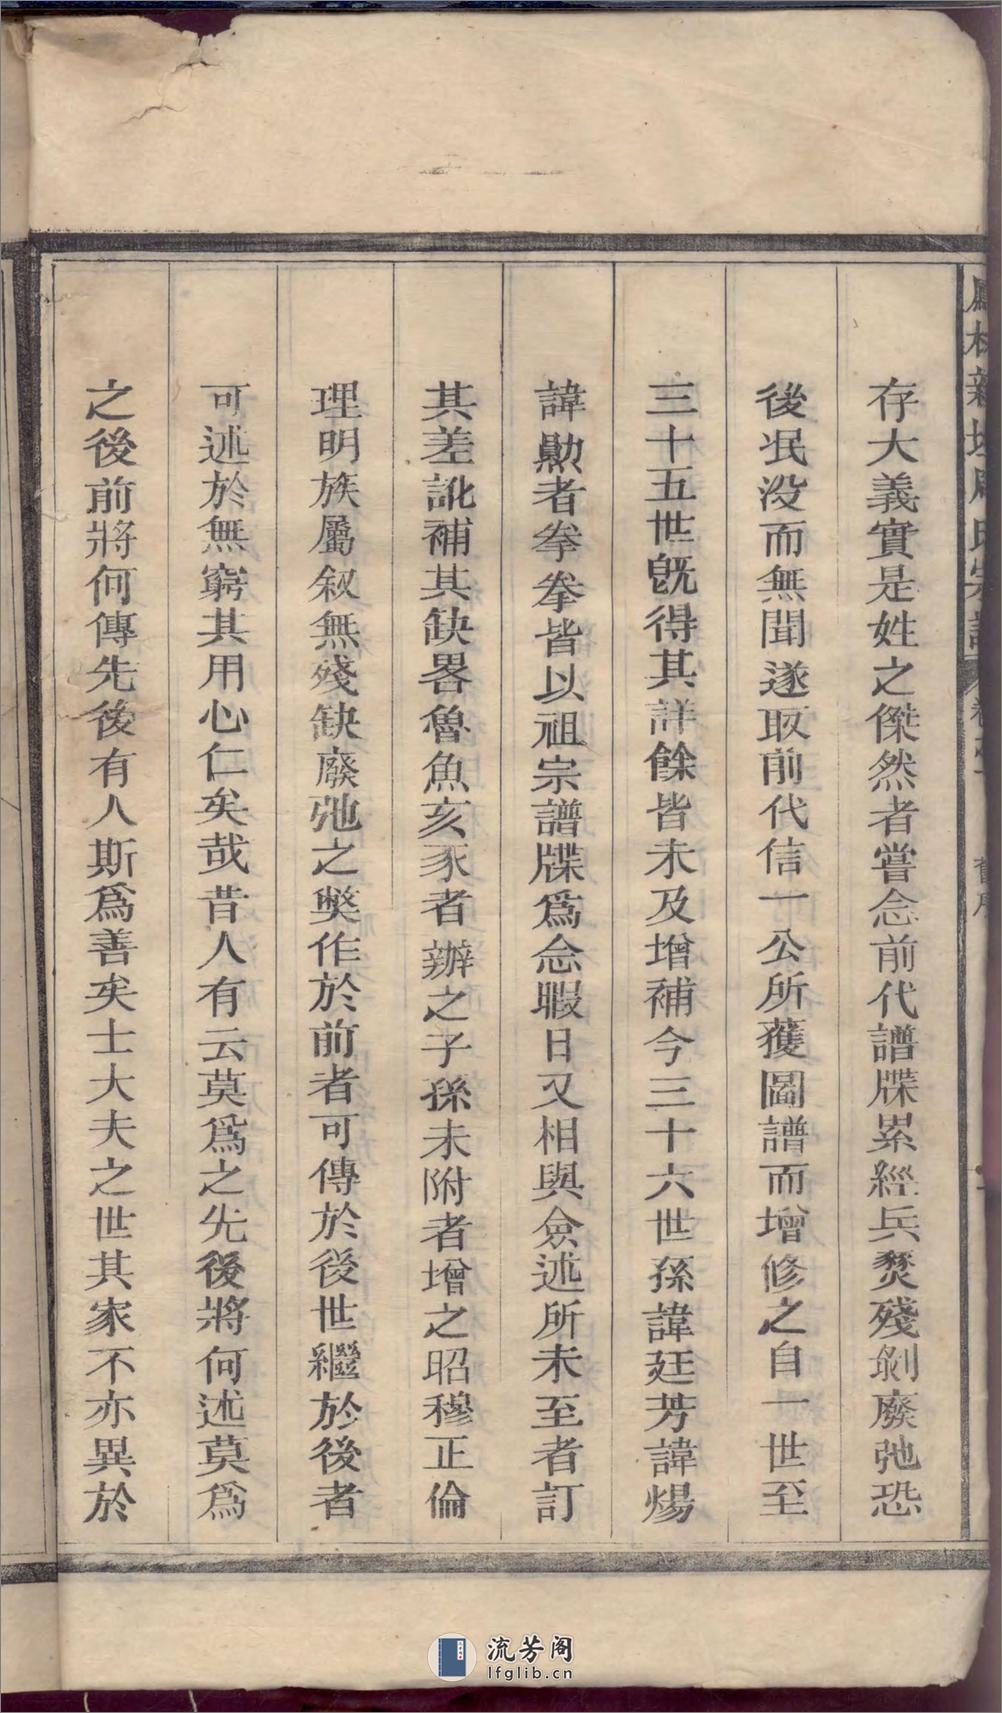 存大義實是姓之傑然者嘗念前代譜牒累經兵燹殘剝廢弛恐
後泯没而無聞遂取前代信一公所獲圖譜而增修之自一世至
三十五世旣得其詳餘皆未及增補今三十六世孫諱廷芳諱煬
諱勲者拳拳皆以祖宗譜牒爲念暇日又相與僉述所未至者訂
其差訛補其缺畧魯魚亥豕者辦之子孫未附者增之昭穆正倫
理明族屬叙無殘缺廢弛之獘作於前者可傳於後世繼於後者
可述於無窮其用心仁矣哉昔人有云莫爲之先後將何述莫爲
之後前將何傳先後有人斯爲善矣士大夫之世其家不亦異於
流芳阁
lfglib.cn